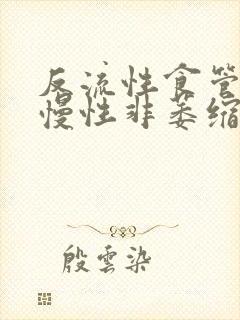 反流性食管
慢性非萎缩
殷雲染